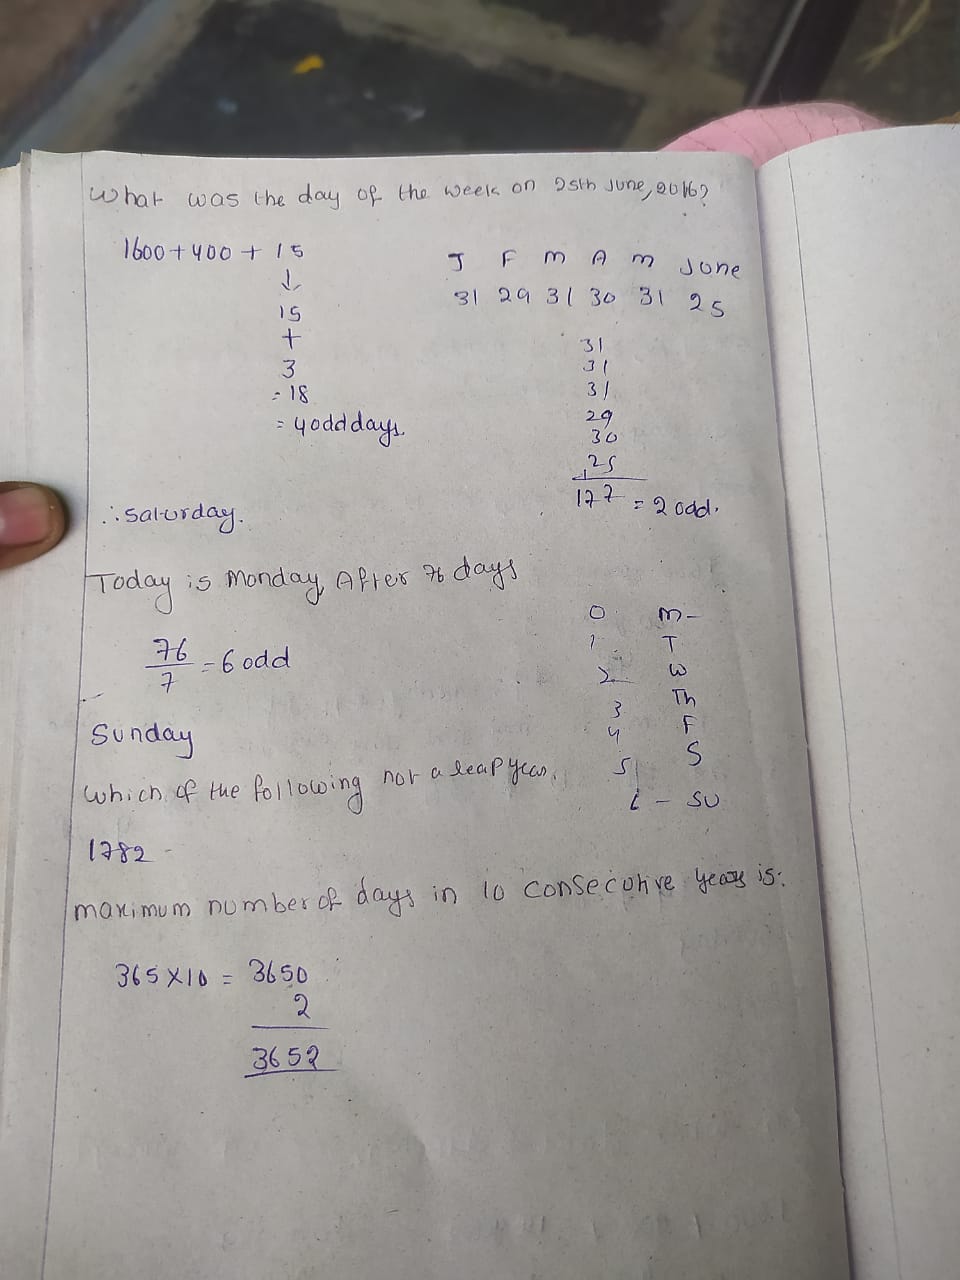 What was the day of the week on 25th June, 2016?
1600+400 + 15
↓
15
+
3
= 18
= 4 odd days
J F M A M June
31 29 31 30 31 25
31
31
31
29
30
25
177 = 2 odd.
∴ Saturday.
Today is Monday, After 76 days
76
7
= 6 odd
0 M-
1 T
2 W
3 Th
4 F
5 S
6 - SU
Sunday
which of the following not a leap year.
1782 -
maximum number of days in 10 consecutive years is:
365 X 10 = 3650
2
3652